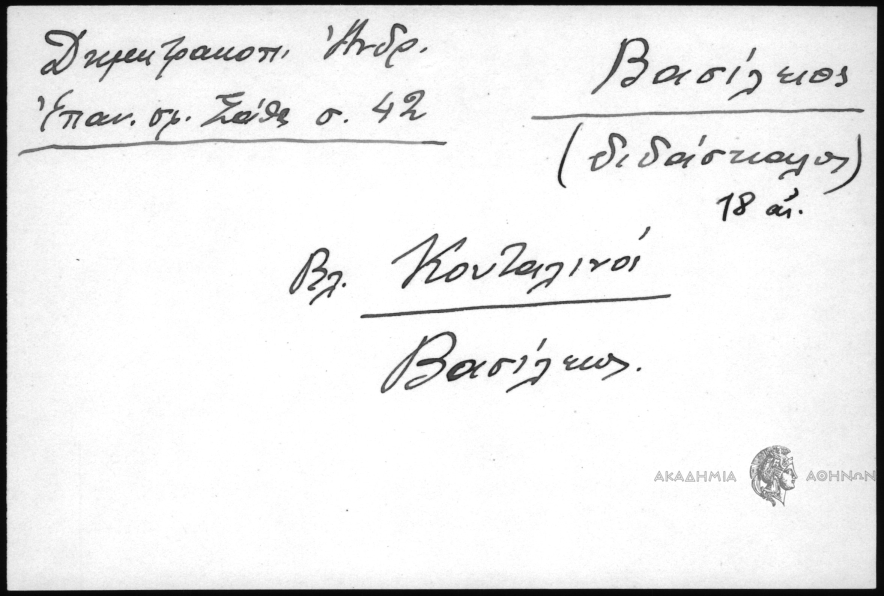 Δημητρακοπ. Ἀνδρ.
Ἐπαν. σφ. Σάθα σ. 42
Βασίλειος
(διδάσκαλος)
18 αἰ.
Βλ. Κουταλινοί
Βασίλειος.
ΑΚΑΔΗΜΙΑ ΑΘΗΝΩΝ